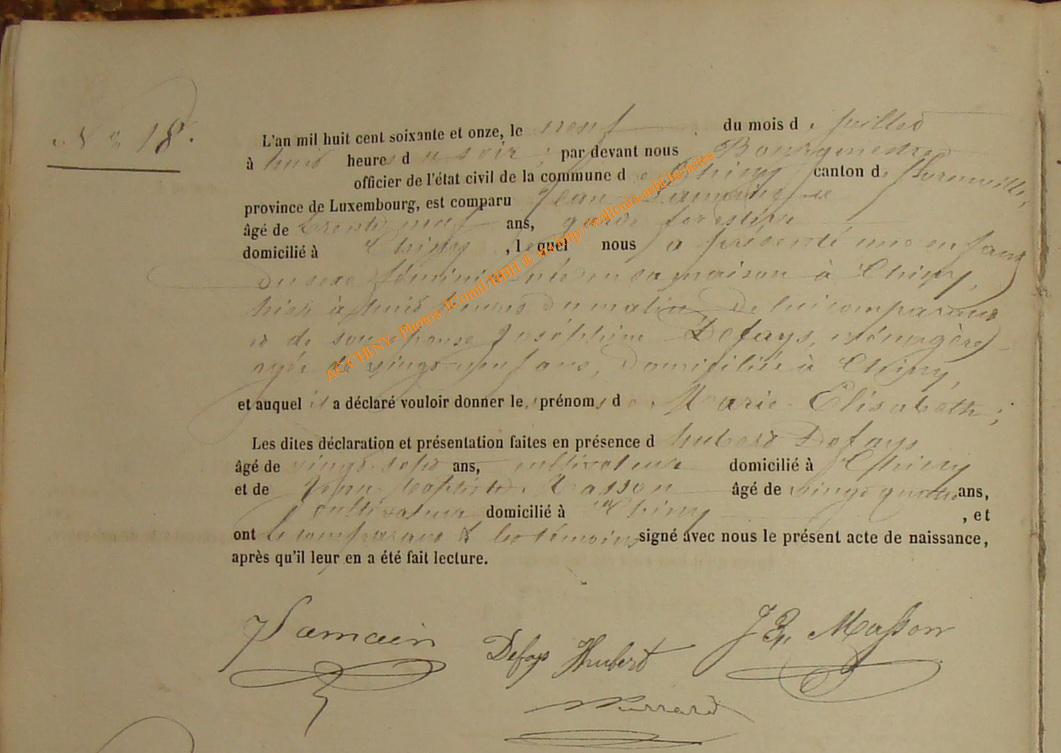 N° 18.
L'an mil huit cent soixante et onze, le neuf du mois de juillet
à huit heures du soir, par devant nous Bourgmestre
officier de l'état civil de la commune de Chiny canton de Florenville,
province de Luxembourg, est comparu Jean
âgé de trente neuf ans, garde forestier
domicilié à Chiny, lequel nous a présenté une enfant
du sexe féminin née en sa maison à Chiny,
hier à huit heures du matin de lui comparant
et de son épouse Joséphine Defays, ménagère
agée de vingt-neuf ans, domiciliée à Chiny,
et auquel il a déclaré vouloir donner les prénoms de Marie-Elisabeth;
Les dites déclaration et présentation faites en présence d Hubert Defays
âgé de vingt-sept ans, cultivateur domicilié à Chiny
et de Jean-Baptiste Masson âgé de vingt quatre ans,
cultivateur domicilié à Chiny, et
ont le comparant & les témoins signé avec nous le présent acte de naissance,
après qu'il leur en a été fait lecture.
J Lamain Defays Hubert J Bte Masson